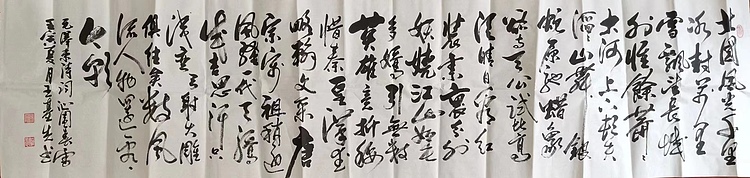 北國風光千里
冰封万里
雪飄望长城
内外惟餘莽莽
大河上下顿失
滔滔山舞銀
蛇原驰蜡象
欲与天公試比高
须晴日看红
装素裹分外
妖娆江山如此
多嬌引無数
英雄竞折腰
惜秦皇漢武
略输文采唐
宗宋祖稍逊
風骚一代天骄
成吉思汗只
識弯弓射大雕
俱往矣数風
流人物還看今
朝
毛泽东诗词沁園春雪
壬寅夏月王基书